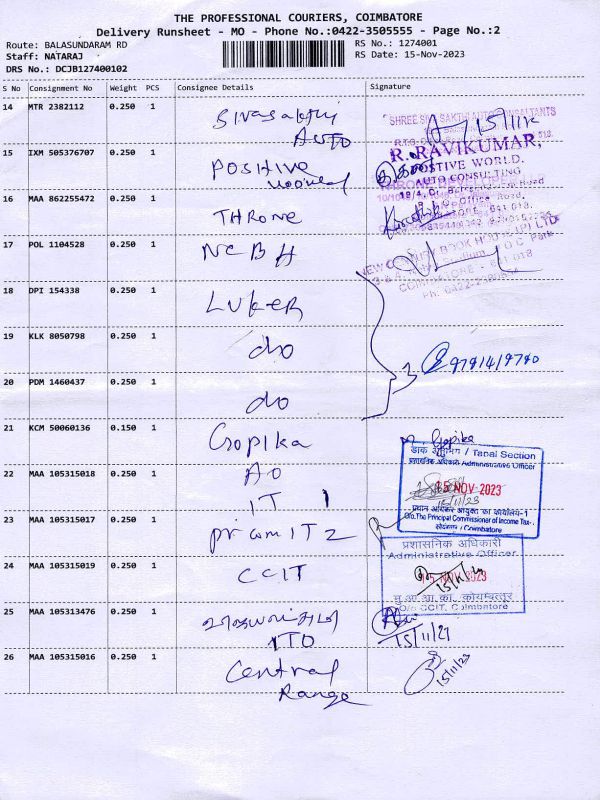 THE PROFESSIONAL COURIERS, COIMBATORE
Delivery Runsheet - MO - Phone No.:0422-3505555 - Page No.:2
Route: BALASUNDARAM RD
RS No.: 1274001
Staff: NATARAJ
RS Date: 15-Nov-2023
DRS No.: DCJB127400102
S No Consignment No Weight PCS Consignee Details Signature
14 MTR 2382112 0.250 1 Sivasakthi
AUTO
15/11/2
15 IXM 505376707 0.250 1 POSITIVE
R. RAVIKUMAR,
POSITIVE WORLD.
AUTO CONSULTING
16 MAA 862255472 0.250 1 THRONE
17 POL 1104528 0.250 1 NCBH
NEW CENTURY BOOK HOUSE (P) LTD
COIMBATORE - 641 018
18 DPI 154338 0.250 1 LUKER
19 KLK 8050798 0.250 1 do
20 PDM 1460437 0.250 1 do
3
21 KCM 50060136 0.150 1 Gopika
Gopika
22 MAA 105315018 0.250 1 AO
IT 1
डाक अनुभाग / Tapal Section
प्रशासनिक अधिकारी Administrative Officer
15 NOV 2023
15/11/23
प्रधान आयकर आयुक्त का कार्यालय-1
O/o.The Principal Commissioner of Income Tax-
कोयंबत्तूर / Coimbatore
23 MAA 105315017 0.250 1 Pr com IT 2
24 MAA 105315019 0.250 1 CCIT
प्रशासनिक अधिकारी
Administrative Officer
15 NOV 2023
मु.आ.आ.का, कोयम्बत्तूर
O/o CCIT, Coimbatore
25 MAA 105313476 0.250 1
ITO
15/11/23
26 MAA 105315016 0.250 1 Central
Range
15/11/23